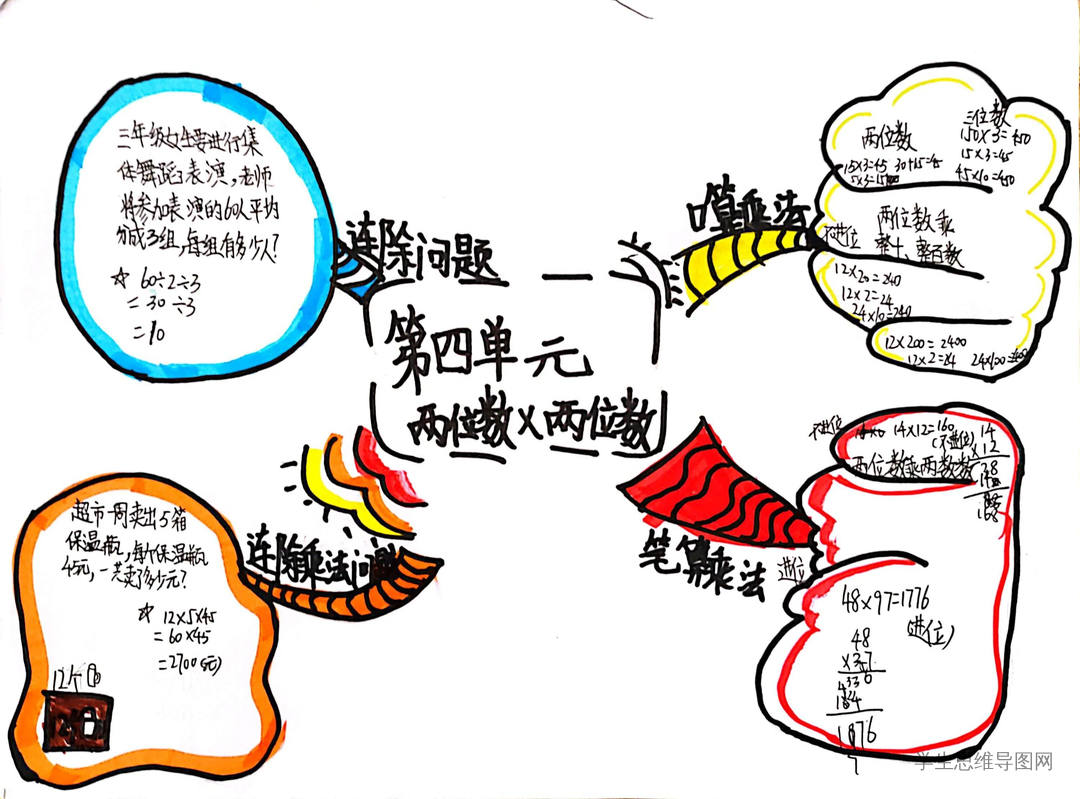 第四单元
两位数×两位数
连除问题
三年级女生要进行集
体舞蹈表演,老师
将参加表演的60人平均
分成3组,每组有多少人?
☆ 60÷2÷3
=30÷3
=10
口算乘法
两位数
15×3=45 30+15=45
三位数
150×3=450
15×3=45
45×10=450
不进位
两位数乘
整十、整百数
12×20=240
12×2=24
24×10=240
12×200=2400
12×2=24
连除乘法问题
超市一周卖出5箱
保温瓶,每个保温瓶
45元,一共卖了多少元?
☆ 12×5×45
=60×45
=2700(元)
12个
笔算乘法
不进位
14×12=160
(不进位)
14
×12
28
168
进位
48×97=1776
(进位)
48
×37
学生思维导图网